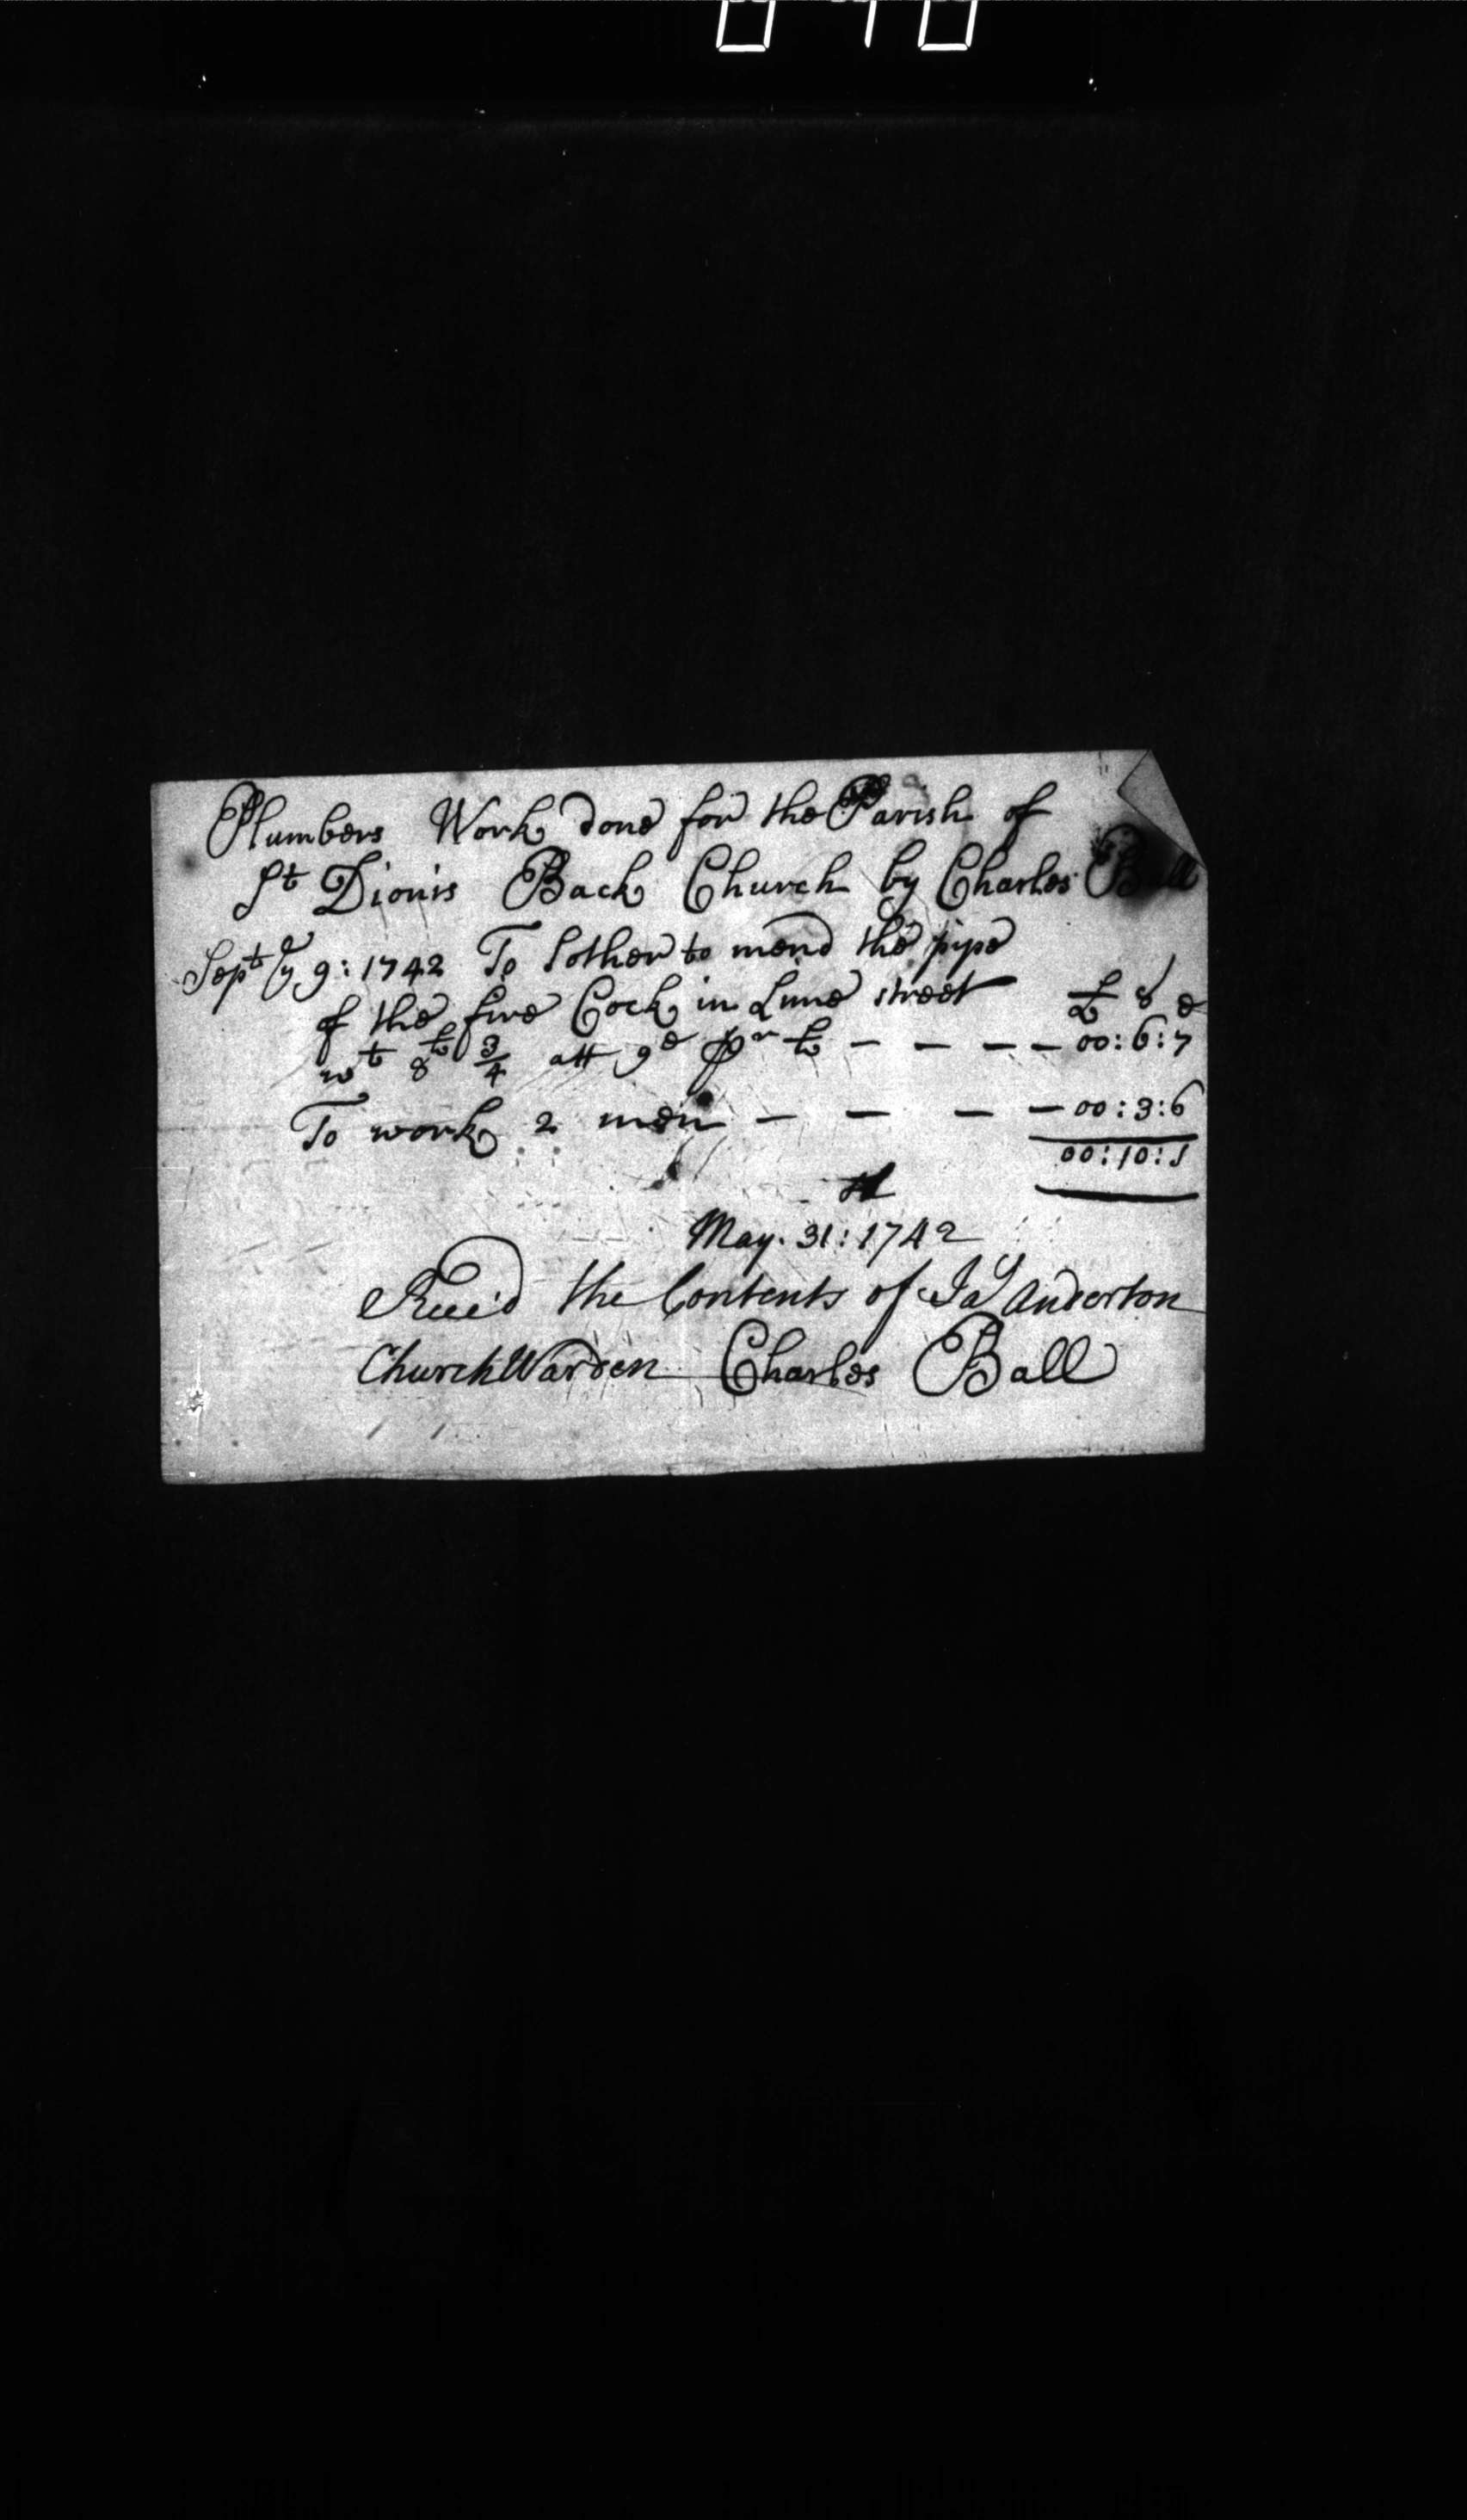 Plumbers Work done for the Parish of
St Dionis Back Church by Charles Ball
Septr ye 9: 1742 To Sother to mend the pipe
of the fire Cock in Lime street £ s d
wt 8 lb 3/4 att 9d pr lb - - - - 00:6:7
To work 2 men - - - - 00:3:6
00:10:1
May. 31: 1742
Rec'd the Contents of Jas Anderton
Church Warden Charles Ball